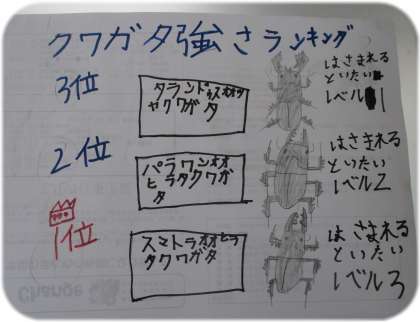 クワガタ強さランキング
3位
タランドゥスオオツ
ヤクワガタ
はさまれる
といたい
レベル1
2位
パラワンオオ
ヒラタクワガ
タ
はさまれる
といたい
レベル2
1位
スマトラオオヒラ
タクワガタ
はさまれる
といたい
レベル3
Change